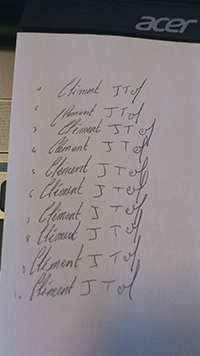 acer
1 Clément J T of
2 Clément J T of
3 Clément J T of
4 Clément J T of
5 Clément J T of
6 Clément J T of
7 Clément J T of
8 Clément J T of
9 Clément J T of
10 Clément J T of